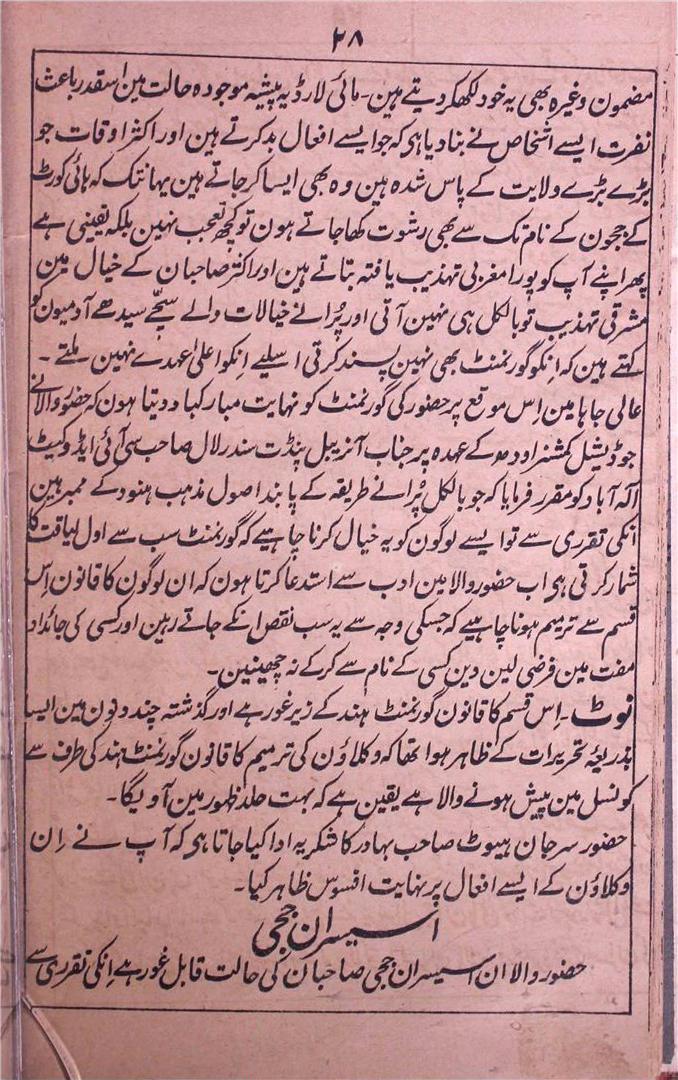 ۲۸
مضمون وغیرہ بھی یہ خود لکھکر دیتے ہین۔ مائی لارڈ یہ پیشہ موجودہ حالت مین اسقدر باعث
نفرت ایسے اشخاص نے بنا دیا ہی کہ جو ایسے افعال بد کرتے ہین اور اکثر اوقات جو
بڑے بڑے ولایت کے پاس شدہ ہین وہ بھی ایسا کر جاتے ہین یہانتک کہ ہائی کورٹ
کے ججون کے نام تک سے بھی رشوت کھا جاتے ہون تو کچھ تعجب نہین بلکہ یقینی ہے
پھر اپنے آپ کو پورا مغربی تہذیب یافتہ بتاتے ہین اور اکثر صاحبان کے خیال مین
مشرقی تہذیب تو بالکل ہی نہین آتی اور پُرانے خیالات والے سچّے سیدھے آدمیون کو
کہتے ہین کہ اِنکو گورنمنٹ بھی نہین پسند کرتی اسلیے اِنکو اعلیٰ عہدے نہین ملتے۔
عالی جاہا مین اِس موقع پر حضور کی گورنمنٹ کو نہایت مبارکباد دیتا ہون کہ حضور والا نے
جوڈیشل کمشنر اودھ کے عہدہ پر جناب آنریبل پنڈت سندر لال صاحب سی آئی ای ایڈوکیٹ
الہ آباد کو مقرر فرمایا کہ جو بالکل پُرانے طریقہ کے پابند اصول مذہب ہنود کے ممبر ہین
انکی تقرری سے تو ایسے لوگون کو یہ خیال کرنا چاہیے کہ گورنمنٹ سب سے اول لیاقت کا
شمار کرتی ہی اب حضور والا مین ادب سے استدعا کرتا ہون کہ ان لوگون کا قانون اِس
قسم سے ترمیم ہونا چاہیے کہ جسکی وجہ سے یہ سب نقص انکے جاتے رہین اور کسی کی جائداد
مفت مین فرضی لین دین کسی کے نام سے کرکے نہ چھینین۔
نوٹ۔ اِس قسم کا قانون گورنمنٹ ہند کے زیر غور ہے اور گذشتہ چند دنون مین ایسا
بذریعۂ تحریرات کے ظاہر ہوا تھا کہ وکلاؤن کی ترمیم کا قانون گورنمنٹ ہند کی طرف سے
کونسل مین پیش ہونے والا ہے یقین ہے کہ بہت جلد ظہور مین آویگا۔
حضور سر جان ہیوٹ صاحب بہادر کا شکریہ ادا کیا جاتا ہی کہ آپ نے اِن
وکلاؤن کے ایسے افعال پر نہایت افسوس ظاہر کیا۔
اسیسران ججی
حضور والا ان اسیسران ججی صاحبان کی حالت قابل غور ہے اِنکی تقرری سے